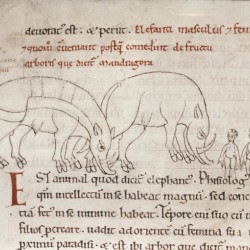 deuorat' est. & perit. Elefans masculus & fem
& quom' eueniant postq' comedunt de fructu
arboris que dicit' mandragora
EST animal quod dicit' elephans. Phisiolog'
qm intellectus in se habeat magnus. sed conc
tia fet'us in se minime habeat. Tempore eni suo cu u
filios p'creare. uadit ad oriente cu femina su a
proximu paradisi. & e ibi arbor que dicit' man